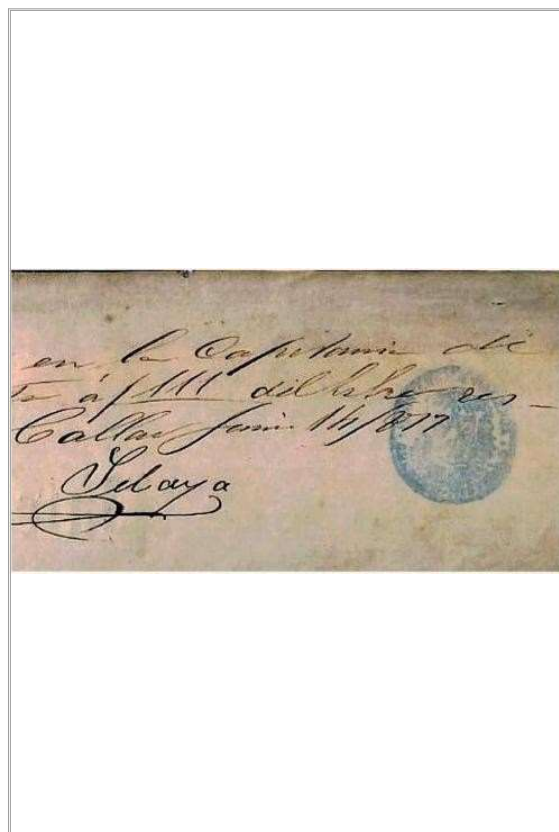 en la Capitania de
te á f 111 del libro res-
Callao Junio 14/877
Selaya